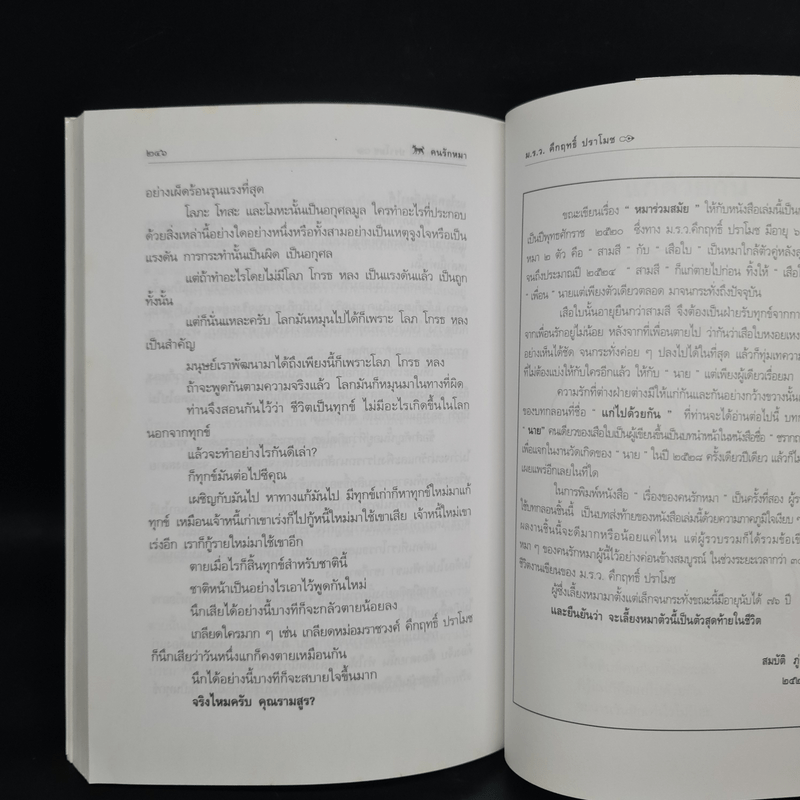 ๒๔๖
คนรักหมา
อย่างเผ็ดร้อนรุนแรงที่สุด
โลภะ โทสะ และโมหะนั้นเป็นอกุศลมูล ใครทำอะไรที่ประกอบ
ด้วยสิ่งเหล่านี้อย่างใดอย่างหนึ่งหรือทั้งสามอย่างเป็นเหตุจูงใจหรือเป็น
แรงดัน การกระทำนั้นเป็นผิด เป็นอกุศล
แต่ถ้าทำอะไรโดยไม่มีโลภ โกรธ หลง เป็นแรงดันแล้ว เป็นถูก
ทั้งนั้น
แต่ก็นั่นแหละครับ โลกมันหมุนไปได้ก็เพราะ โลภ โกรธ หลง
เป็นสำคัญ
มนุษย์เราพัฒนามาได้ถึงเพียงนี้ก็เพราะโลภ โกรธ หลง
ถ้าจะพูดกันตามความจริงแล้ว โลกมันก็หมุนมาในทางที่ผิด
ท่านจึงสอนกันไว้ว่า ชีวิตเป็นทุกข์ ไม่มีอะไรเกิดขึ้นในโลก
นอกจากทุกข์
แล้วจะทำอย่างไรกันดีเล่า?
ก็ทุกข์มันต่อไปซีคุณ
เผชิญกับมันไป หาทางแก้มันไป มีทุกข์เก่าก็หาทุกข์ใหม่มาแก้
ทุกข์ เหมือนเจ้าหนี้เก่าเขาเร่งก็ไปกู้หนี้ใหม่มาใช้เขาเสีย เจ้าหนี้ใหม่เขา
เร่งอีก เราก็กู้รายใหม่มาใช้เขาอีก
ตายเมื่อไรก็สิ้นทุกข์สำหรับชาตินี้
ชาติหน้าเป็นอย่างไรเอาไว้พูดกันใหม่
นึกเสียได้อย่างนี้บางทีก็จะกลัวตายน้อยลง
เกลียดใครมาก ๆ เช่น เกลียดหม่อมราชวงศ์ คึกฤทธิ์ ปราโมช
ก็นึกเสียว่าวันหนึ่งแกก็คงตายเหมือนกัน
นึกได้อย่างนี้บางทีก็จะสบายใจขึ้นมาก
จริงไหมครับ คุณรามสูร?
ม.ร.ว. คึกฤทธิ์ ปราโมช
ขณะเขียนเรื่อง " หมาร่วมสมัย " ให้กับหนังสือเล่มนี้เป็น
เป็นปีพุทธศักราช ๒๕๒๐ ซึ่งทาง ม.ร.ว.คึกฤทธิ์ ปราโมช มีอายุ ๖
หมา ๒ ตัว คือ " สามสี " กับ " เสือใบ " เป็นหมาใกล้ตัวคู่หลังสุ
จนถึงประมาณปี ๒๕๒๔ " สามสี " ก็แก่ตายไปก่อน ทิ้งให้ " เสือใ
" เพื่อน " นายแต่เพียงตัวเดียวตลอด มาจนกระทั่งถึงปัจจุบัน
เสือใบนั้นอายุยืนกว่าสามสี จึงต้องเป็นฝ่ายรับทุกข์จากกา
จากเพื่อนรักอยู่ไม่น้อย หลังจากที่เพื่อนตายไป ว่ากันว่าเสือใบหงอยเหง
อย่างเห็นได้ชัด จนกระทั่งค่อย ๆ ปลงไปได้ในที่สุด แล้วก็ทุ่มเทความ
ที่ไม่ต้องแบ่งให้กับใครอีกแล้ว ให้กับ " นาย " แต่เพียงผู้เดียวเรื่อยมา
ความรักที่ต่างฝ่ายต่างมีให้แก่กันและกันอย่างกว้างขวางนั้น
ของบทกลอนที่ชื่อ " แก่ไปด้วยกัน " ที่ท่านจะได้อ่านต่อไปนี้ บท
" นาย" คนเดียวของเสือใบเป็นผู้เขียนขึ้นเป็นบทนำหน้าในหนังสือชื่อ " ชราก
เพื่อแจกในงานวัดเกิดของ " นาย " ในปี ๒๕๒๘ ครั้งเดียวปีเดียว แล้วก็ไม่
เผยแพร่อีกเลยในที่ใด
ในการพิมพ์หนังสือ " เรื่องของคนรักหมา " เป็นครั้งที่สอง ผู้ร
ใช้บทกลอนชิ้นนี้ เป็นบทส่งท้ายของหนังสือเล่มนี้ด้วยความภาคภูมิใจเงียบ ๆ
ผลงานชิ้นนี้จะดีมากหรือน้อยแค่ไหน แต่ผู้รวบรวมก็ได้รวมข้อเขีย
หมา ๆ ของคนรักหมาผู้นี้ไว้อย่างค่อนข้างสมบูรณ์ ในช่วงระยะเวลากว่า ๓๐
ชีวิตงานเขียนของ ม.ร.ว. คึกฤทธิ์ ปราโมช
ผู้ซึ่งเลี้ยงหมามาตั้งแต่เล็กจนกระทั่งขณะนี้มีอายุนับได้ ๗๖ ปี
และยืนยันว่า จะเลี้ยงหมาตัวนี้เป็นตัวสุดท้ายในชีวิต
สมบัติ ภู่
๒๕๒